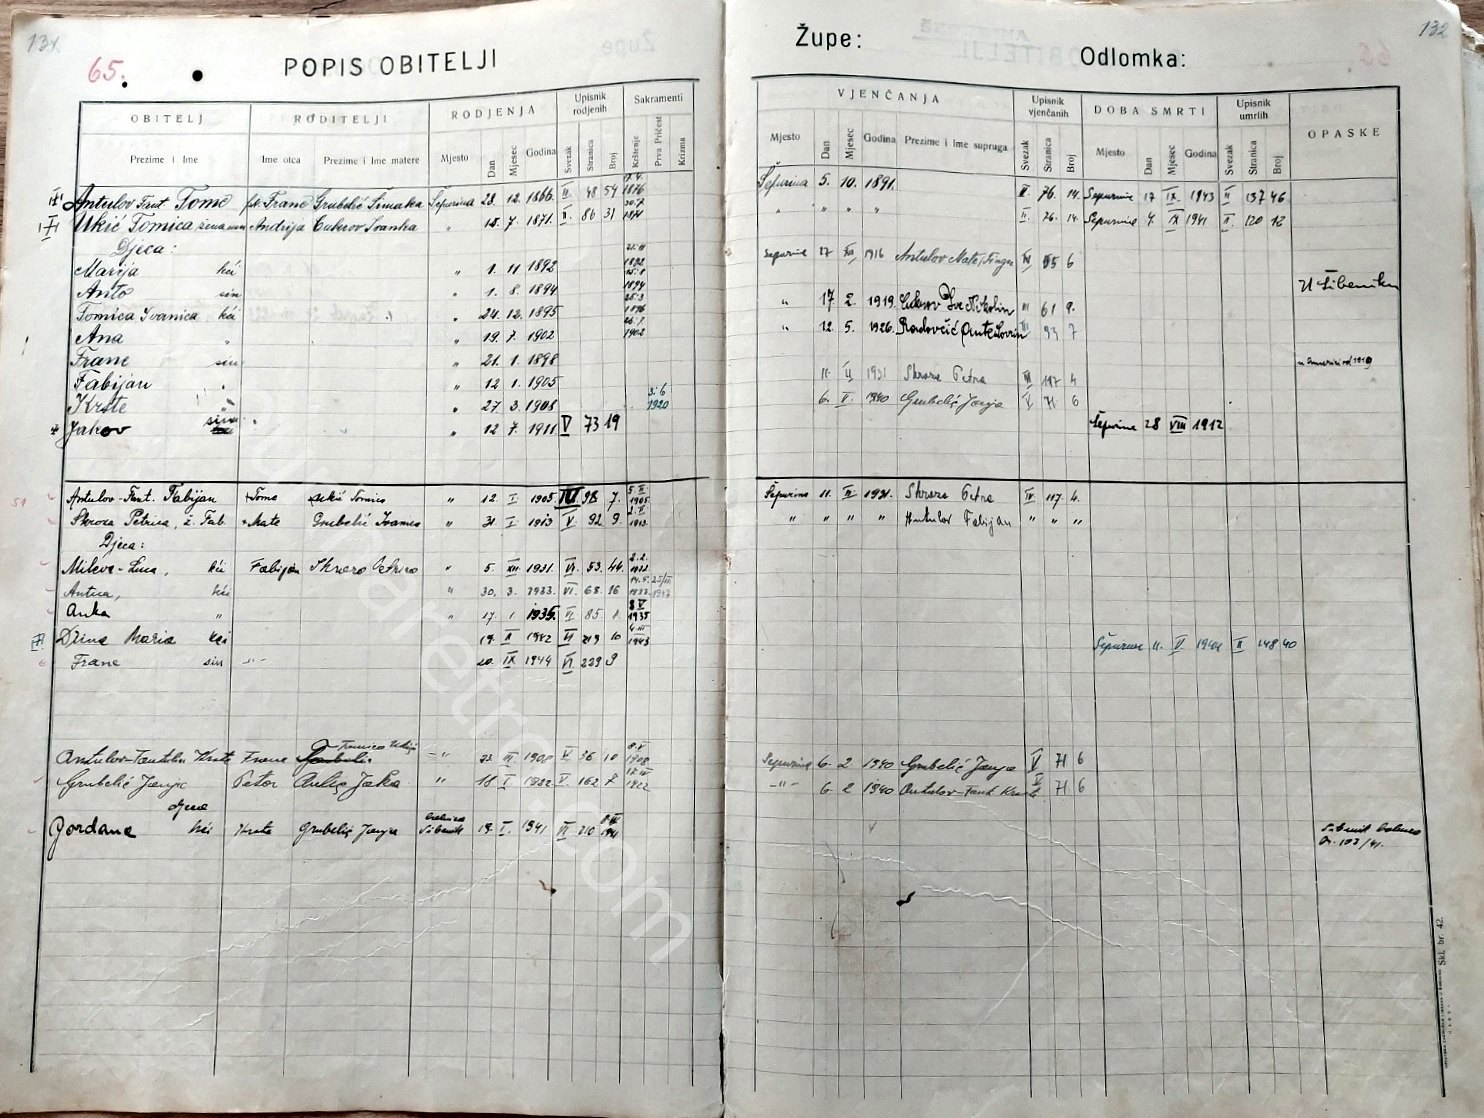 131.
65.
POPIS OBITELJI
OBITELJ
RODITELJI
RODJENJA
Upisnik rodjenih
Sakramenti
Prezime i Ime
Ime otca
Prezime i Ime matere
Mjesto
Dan
Mjesec
Godina
Svezak
Stranica
Broj
Krštenje
Prva Pričest
Krizma
Antulov Fant. Tome pk. Frane Grubelić Šimaka Šepurina 23. 12. 1866. II. 48 54 1876
Ukić Tomica žena mu Andrija Cukrov Ivanka " 15. 7. 1871. II. 86 31 1871
Djeca:
Marija kći " 1. 11 1892 1892
Anto sin " 1. 8. 1894 1894
Tomica Ivanica kći " 24. 12. 1895 1896
Ana " " 19. 7. 1902 1902
Frane sin " 21. 1. 1898
Fabijan " " 12 1. 1905
Krste " " 27 3. 1908 3. 6 1920
Jakov sin " 12 7. 1911 V 73 19
51
Antulov-Fant. Fabijan +Tome Ukić Tomica " 12. I. 1905 98 7. 1905
Skroza Petrica, ž. Fab. +Mate Grubelić Ivanica " 31. I 1913 V. 92. 9. 1913
Djeca:
Mileva-Luca, kći Fabijan Skroza Petrica " 5. XII. 1931. VI. 53. 44.
Antica, kći " 30. 3. 1933. VI. 68. 16 1933
Anka " " 17. 1. 1935. VI 85. 1. 1935
Džina Maria kći 19. II 1942 VI 219 10 1943
Frane sin " 20. IX 1944 VI 229 9
Antulov-Fantulin Krste Frane Tomica Ukić " 27. III 1908 V 36 10 1908
Grubelić Janja Petar Aulić Jaka " 18 I 1922 V. 162 2 1922
djeca
Gordana kći Krste Grubelić Janja Šibenik 19. I. 1941 VI 210 1941
132
Župe:
Odlomka:
VJENČANJA
Upisnik vjenčanih
DOBA SMRTI
Upisnik umrlih
OPASKE
Mjesto
Dan
Mjesec
Godina
Prezime i Ime supruga
Svezak
Stranica
Broj
Mjesto
Dan
Mjesec
Godina
Svezak
Stranica
Broj
Šepurina 5. 10. 1891. II 76. 14. Šepurina 17 IX. 1943 II 137 46
" " " " II. 76. 14. Šepurina 4. IX 1941 II 120 12
Šepurina 27 XII. 1916 Antulov Mate, IV 55 6
U Šibeniku
" 17 2. 1919. Cukrov Ive Nikolin III 61 9.
" 12. 5. 1926. Radovčić Ante Lovrin III 93 7
u Americi od 1910
11. II 1931 Skroza Petra III 117 4
6. V. 1940 Grubelić Janja V 71 6
Šepurina 28 VIII 1912
Šepurina 11. II 1931. Skroza Petra IV. 117. 4.
" " " " Antulov Fabijan " " "
Šepurina 11. V. 1944 II 148 40
Šepurina 6. 2 1940 Grubelić Janja V 71 6
" 6. 2 1940 Antulov-Fant Krste V 71 6
br. 103/41.
Skl. br. 42.